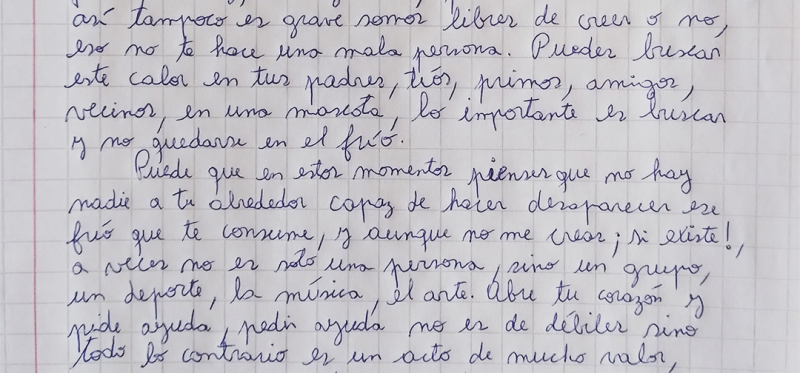 así tampoco es grave somos libres de creer o no,
eso no te hace una mala persona. Puedes buscar
este calor en tus padres, tiós, primos, amigos,
vecinos, en una mascota, lo importante es buscar
y no quedarse en el frió.
Puede que en estos momentos pienses que no hay
nadie a tu alrededor capaz de hacer desaparecer ese
frió que te consume, y aunque no me creas ¡si existe!,
a veces no es sólo una persona, sino un grupo,
un deporte, la música, el arte. Abre tu corazón y
pide ayuda, pedir ayuda no es de débiles sino
todo lo contrario es un acto de mucho valor,